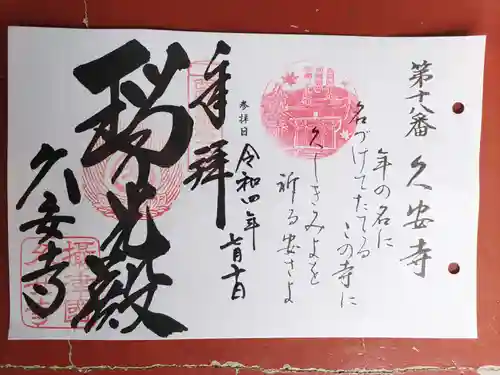 第十八番 久安寺
年の名に
名づけてたてる
この寺に
久しきみよを
祈る安さよ
参拝日 令和四年 七月十日
奉拝
瑞光殿
久安寺
攝津國
久安寺